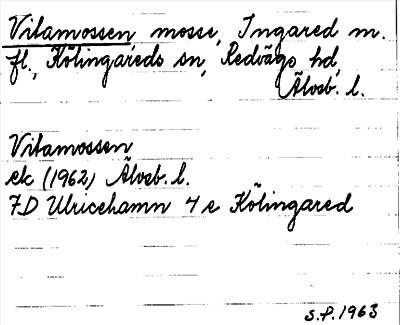 Vitamossen mosse, Ingared m.
fl., Kölingareds sn, Redvägs hd,
Älvsb. l.
Vitamossen
ek (1962) Älvsb. l.
7D Ulricehamn 4 e Kölingared
S.P. 1963